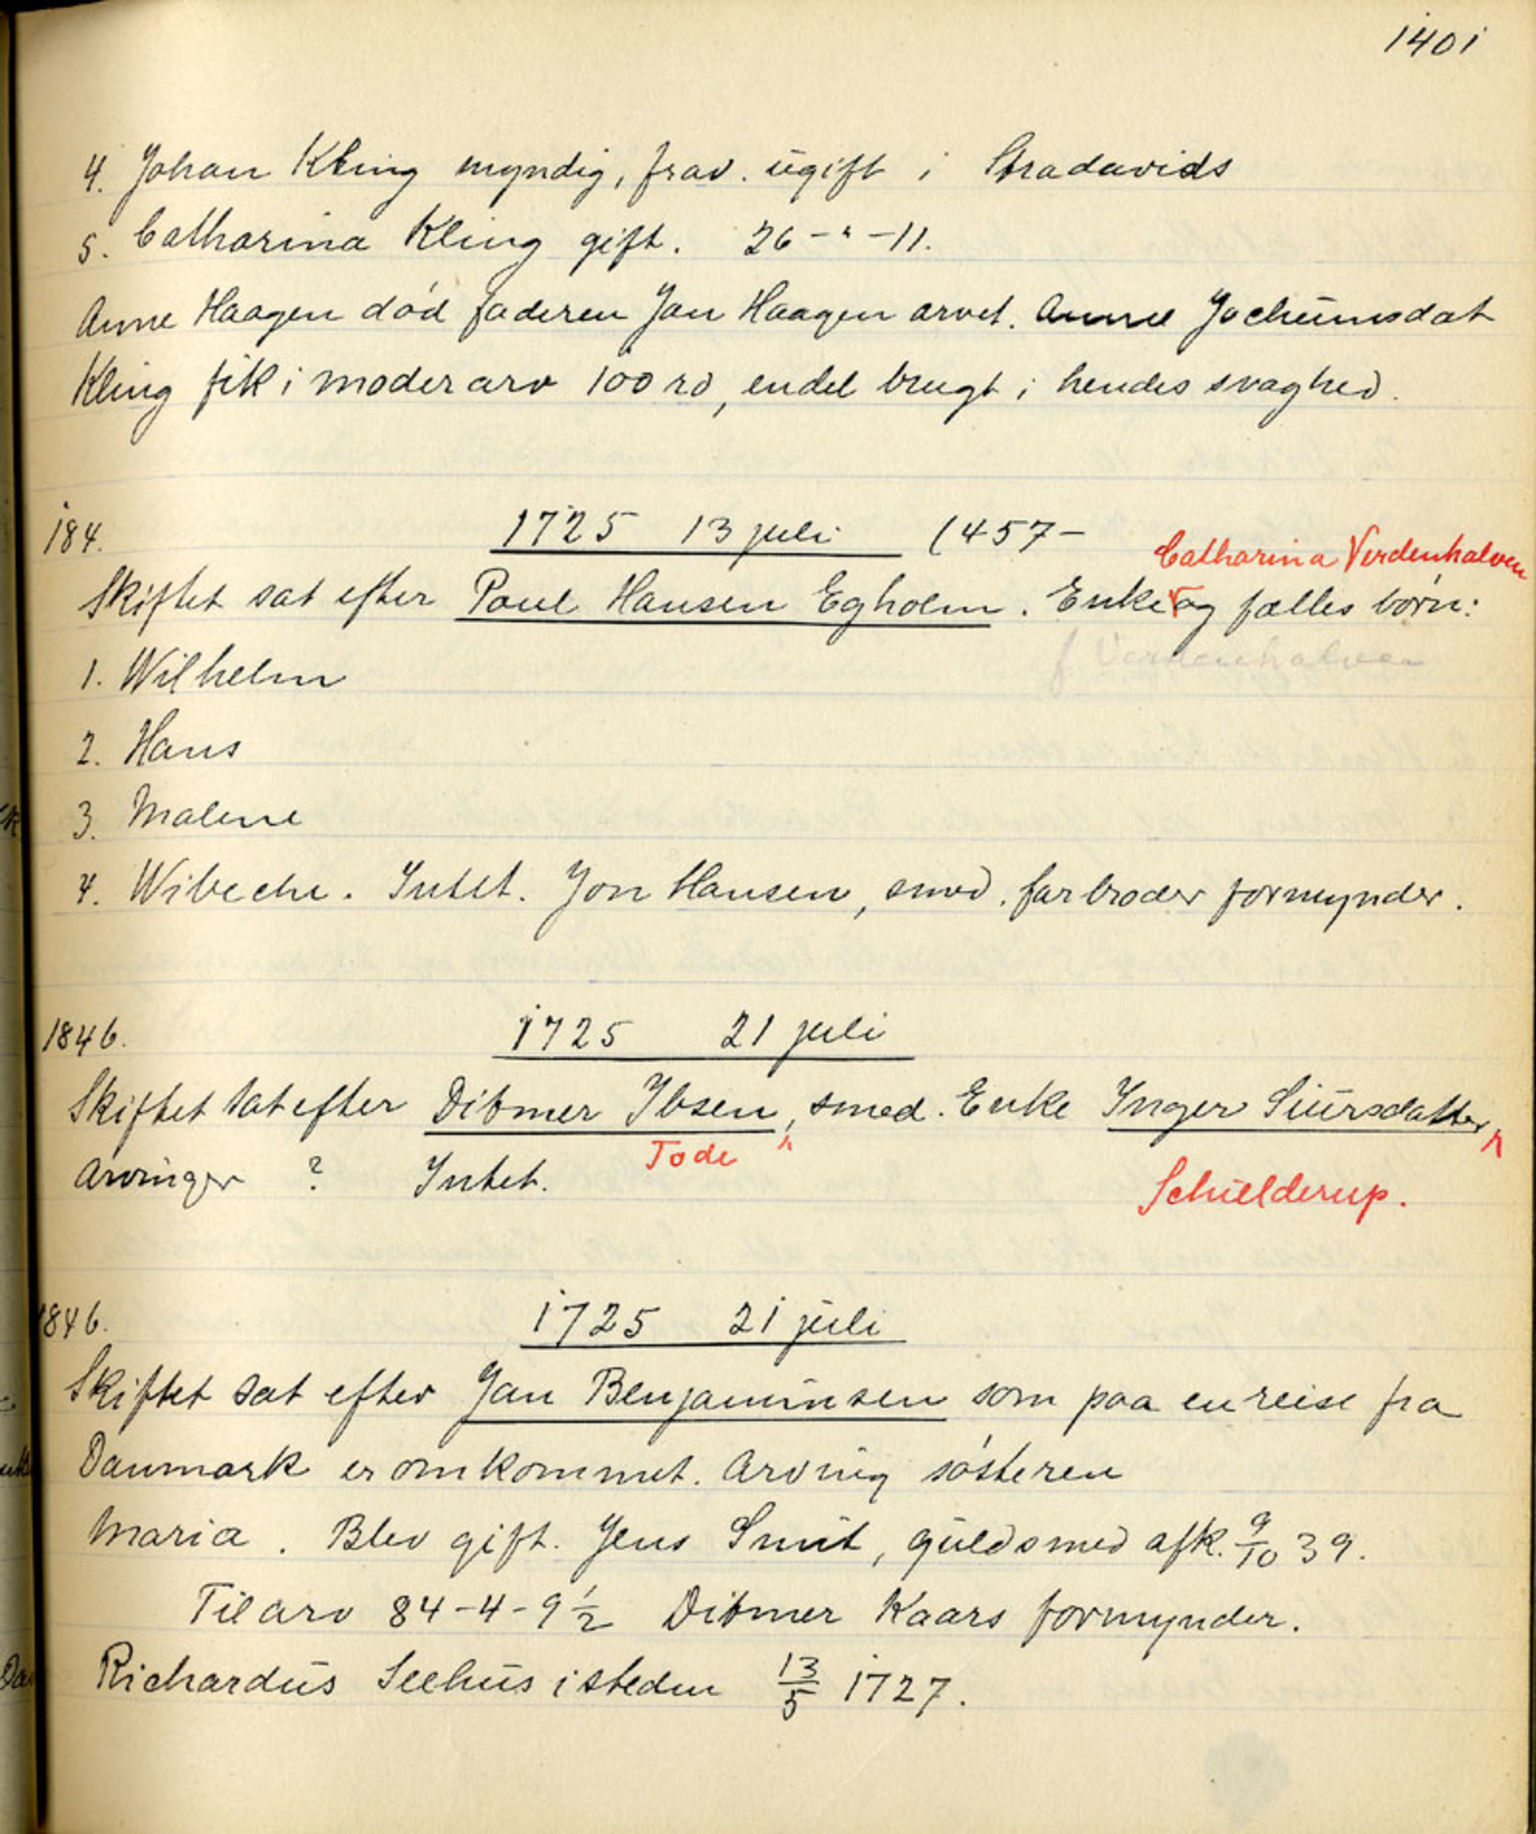 1401
4. Johan Kling myndig, frav. ugift i Stradavids
5. Catharina Kling gift. 26 - " - 11.
Anne Haagen død faderen Jan Haagen arvet. Anne Jochumsdat
Kling fik i moderarv 100 rd, endel brugt i hendes svaghed.
184. 1725 13 juli (457-
Catharina Verdenhalven
Skiftet sat efter Poul Hansen Egholm. Enke og fælles børn:
f Verdenhalven
1. Wilhelm
2. Hans
3. Malene
4. Wibeche. Intet. Jon Hansen, smed. farbroder formynder.
1846. 1725 21 juli
Skiftet sat efter Ditmer Ibsen, smed. Enke Inger Siursdatter
Tode
Arvinger ? Intet.
Schielderup.
1846. 1725 21 juli
Skiftet sat efter Jan Benjaminsen som paa en reise fra
Danmark er omkommet. Arving søsteren
Maria. Blev gift. Jens Smit, guldsmed afk. 9/10 39.
Til arv 84-4-9 1/2 Ditmer Kaars formynder.
Richardus Seehus isteden 13/5 1727.